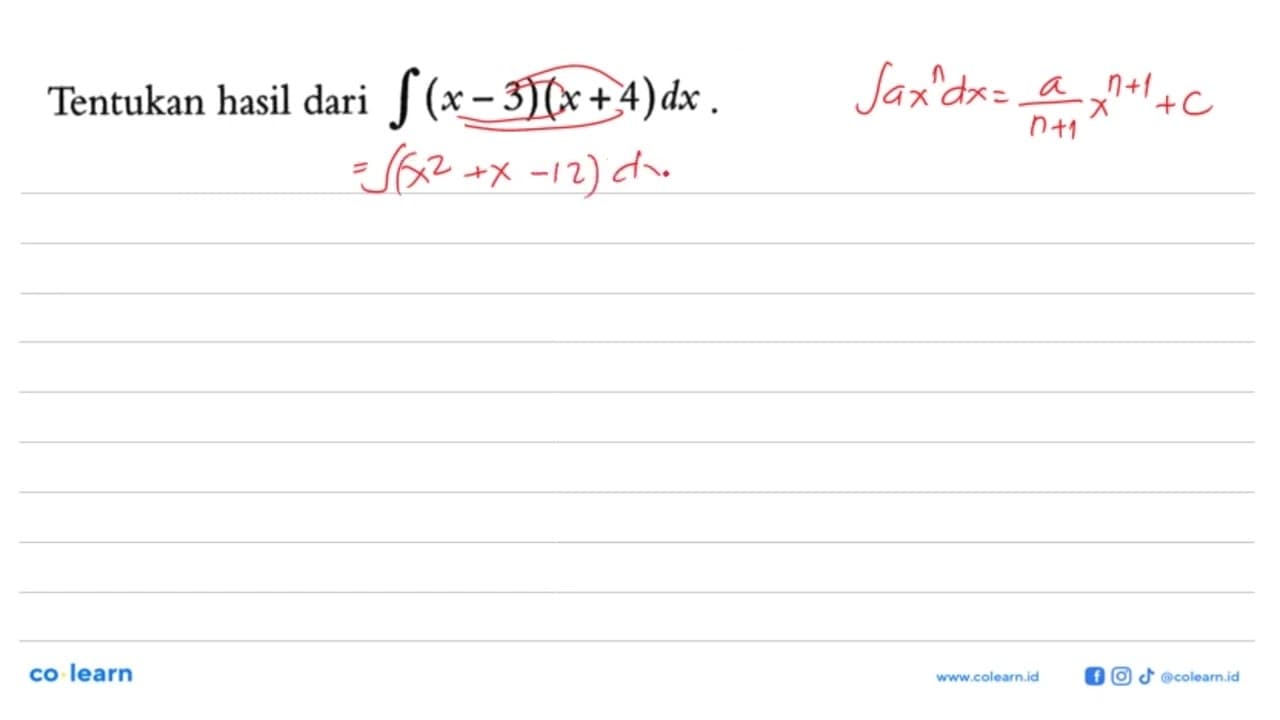 Tentukan hasil dari ∫(x – 3)(x + 4) dx .
∫ax^n dx = a/(n+1) x^(n+1) + C
= ∫(x² + x – 12) dx.
co·learn
www.colearn.id
@colearn.id